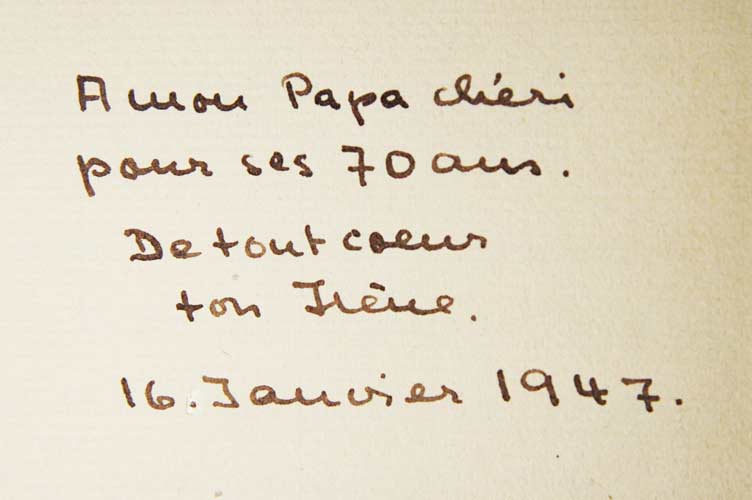 A mon Papa chéri
pour ses 70 ans.
De tout coeur
ton Irène.
16. Janvier 1947.